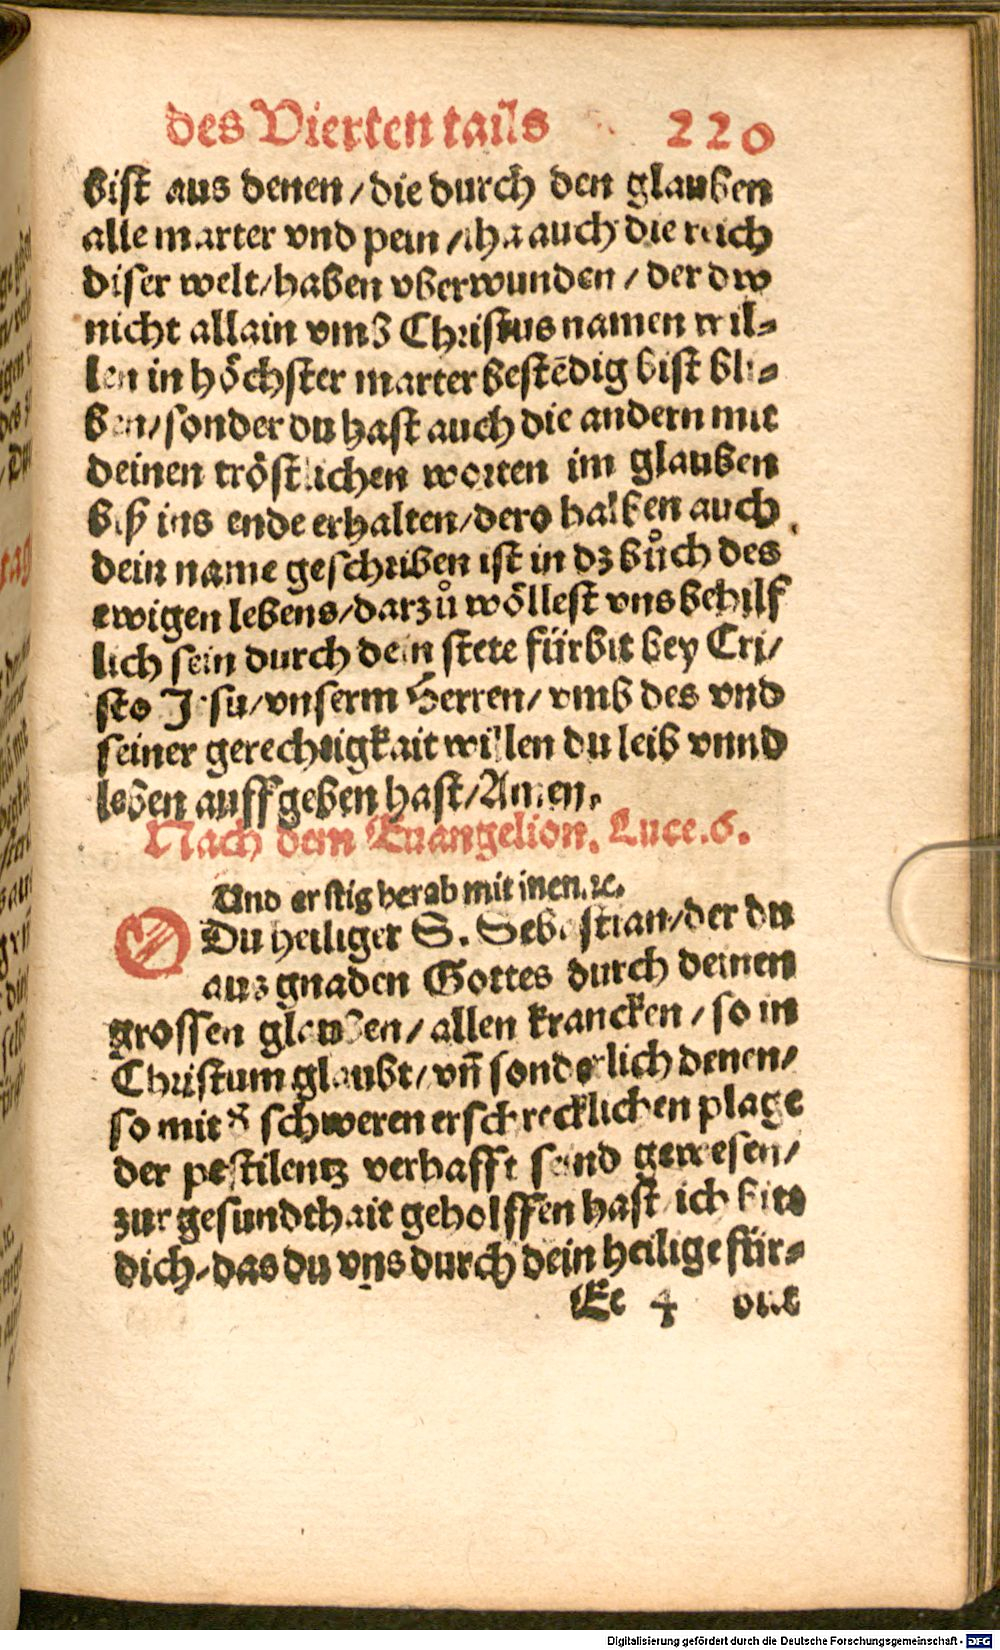 des Vierten tails 220
bist aus denen / die durch den glauben
alle marter vnd pein / iha auch die reich
diser welt / haben vberwunden / der dw
nicht allain vmb Christus namen wil⸗
len in höchster marter bestēdig bist bli⸗
ben / sonder du hast auch die andern mit
deinen tröstlichen worten im glauben
biß ins ende erhalten / dero halben auch
dein name geschriben ist in dz bůch des
ewigen lebens / darzů wöllest vns behilf
lich sein durch dein stete fürbit bey Cri /
sto Jesu / vnserm Herren / vmb des vnd
seiner gerechtigkait willen du leib vnnd
leben auff geben hast / Amen.
Nach dem Euangelion. Luce. 6.
Und er stig herab mit inen. ꝛc.
O Du heiliger S. Sebastian / der du
aus gnaden Gottes durch deinen
grossen glauben / allen krancken / so in
Christum glaubt / vn̄ sonderlich denen /
so mit d̕ schweren erschrecklichen plage
der pestilentz verhafft seind gewesen /
zur gesundthait geholffen hast / ich bitt
dich / das du vns durch dein heilige für⸗
Ee 4